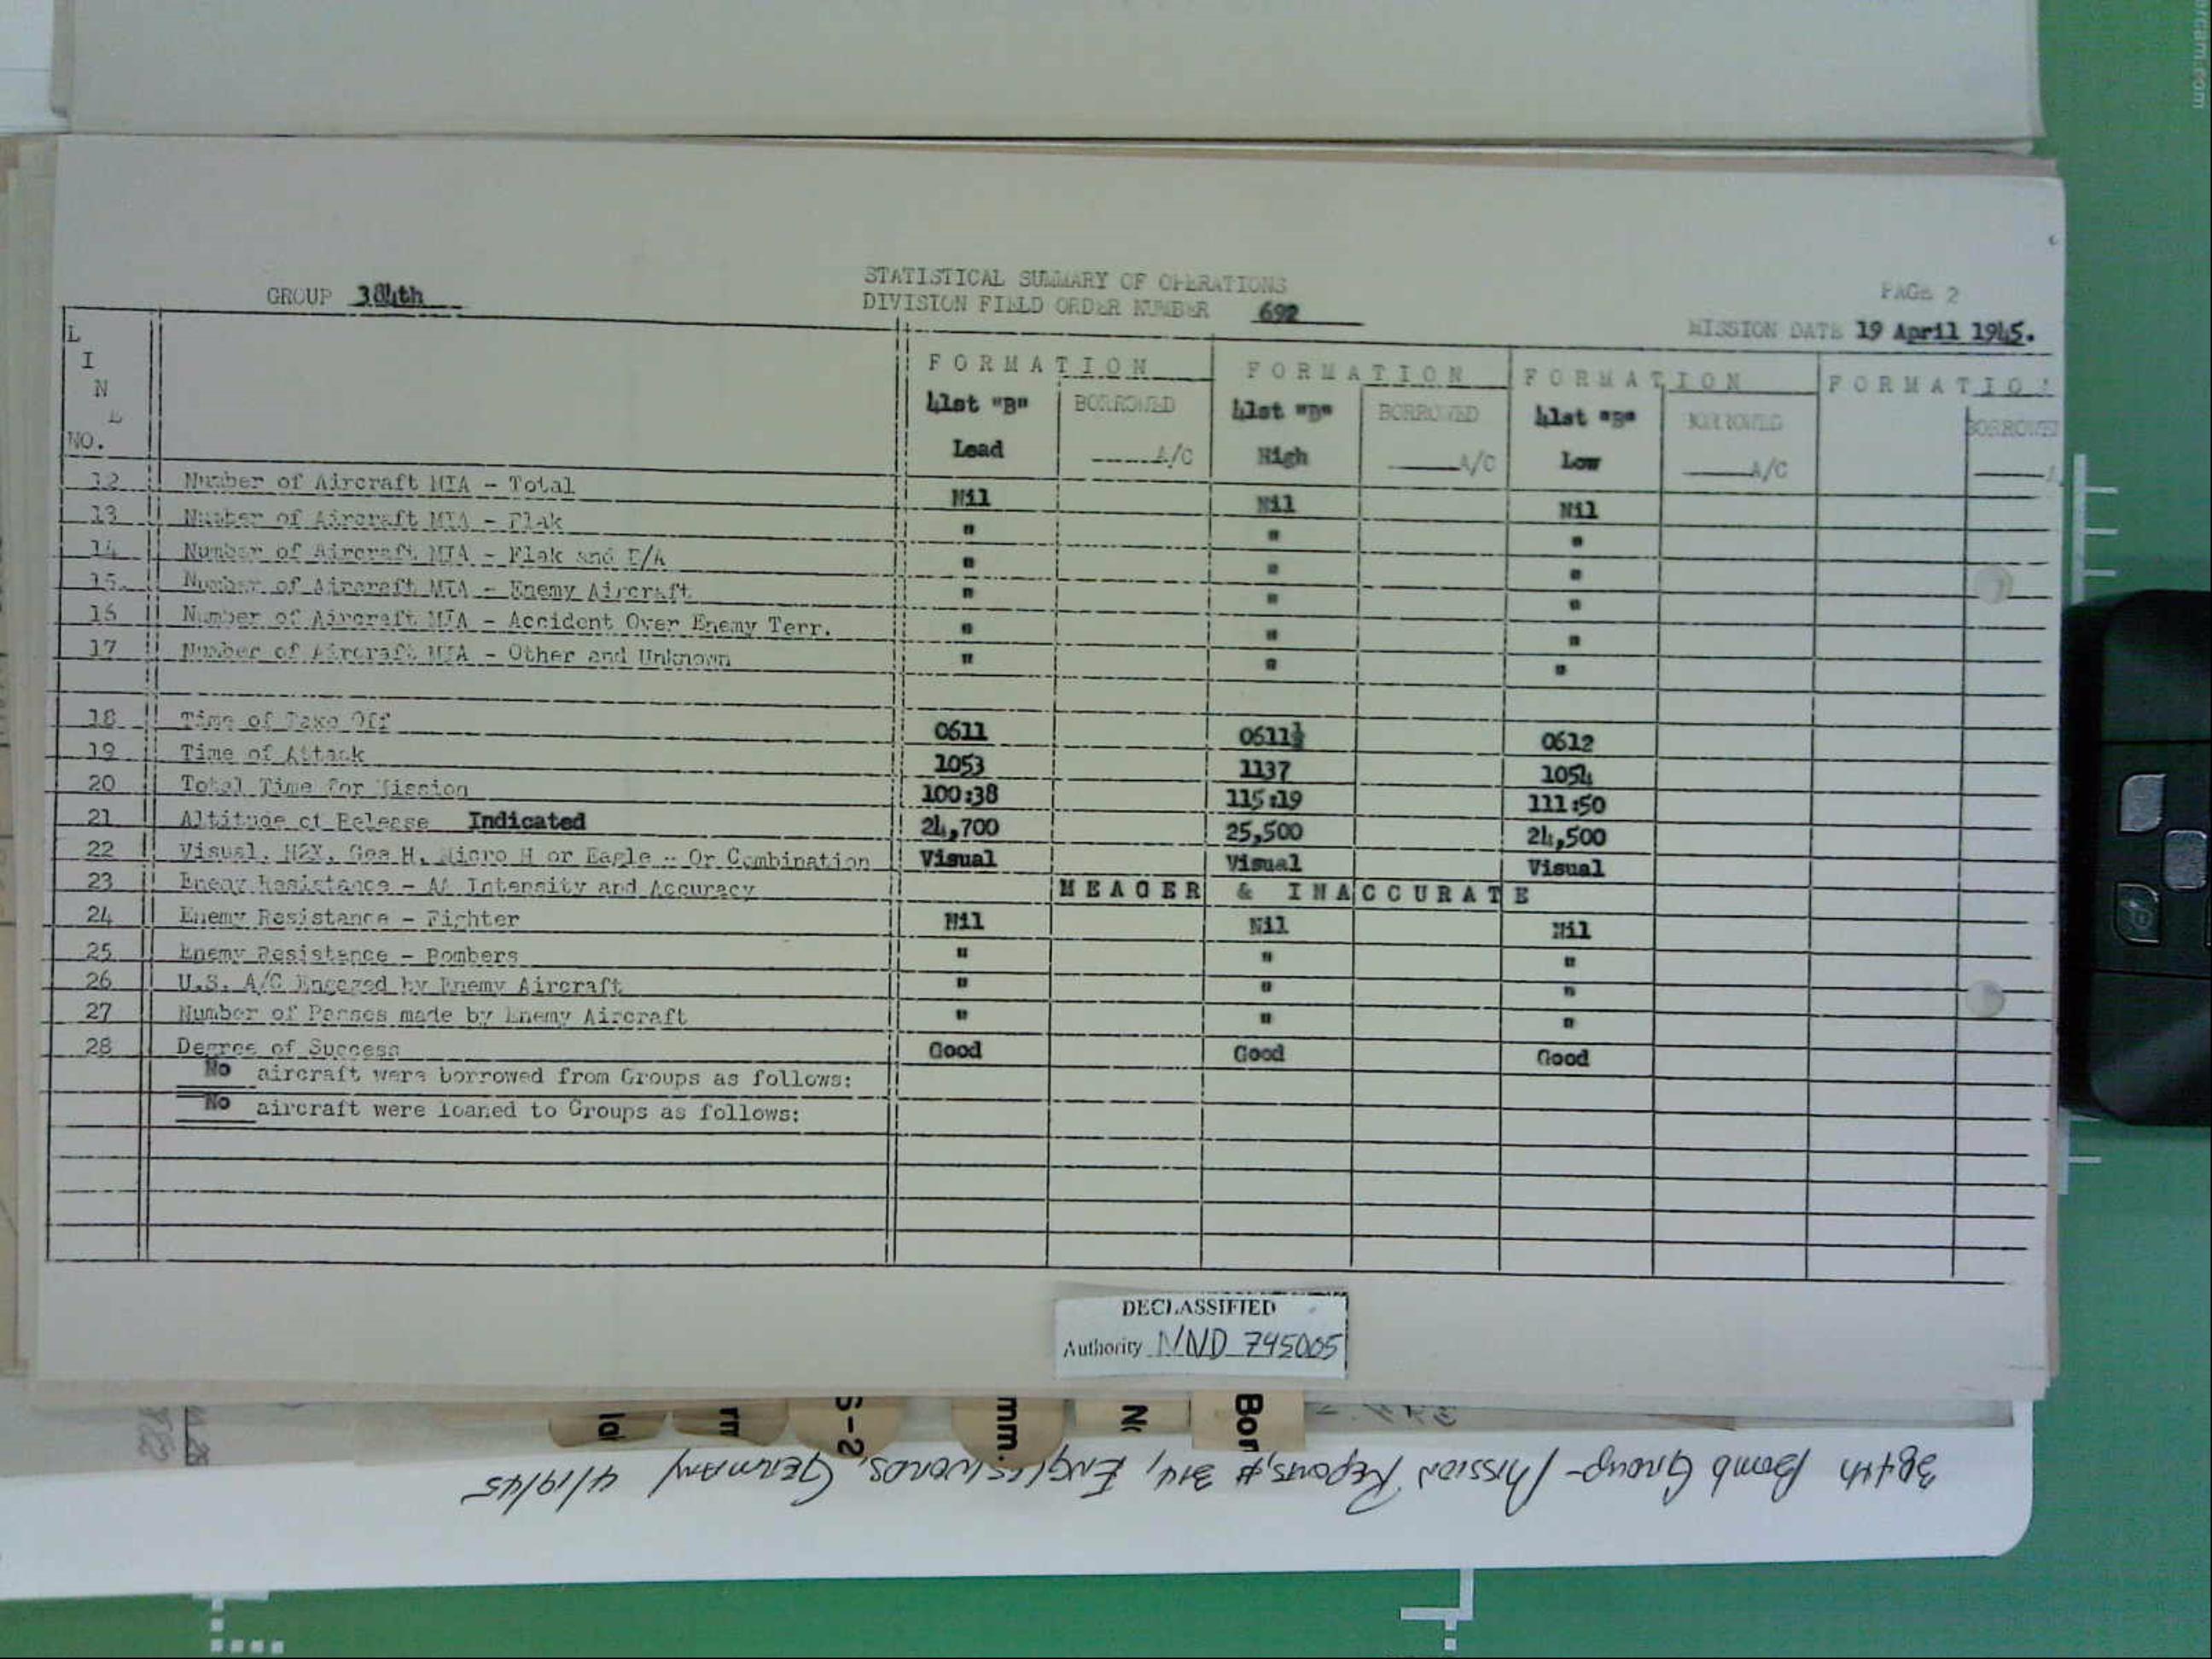 STATISTICAL SUMMARY OF OPERATIONS
GROUP 384th DIVISION FIELD ORDER NUMBER 692 PAGE 2
MISSION DATE 19 April 1945.
LINE NO.
FORMATION FORMATION FORMATION FORMATION
41st "B" BORROWED 41st "B" BORROWED 41st "B" BORROWED BORROWED
Lead A/C High A/C Low A/C
12 Number of Aircraft MIA - Total Nil Nil Nil
13 Number of Aircraft MIA - Flak " " "
14 Number of Aircraft MIA - Flak and E/A " " "
15. Number of Aircraft MIA - Enemy Aircraft " " "
16 Number of Aircraft MIA - Accident Over Enemy Terr. " " "
17 Number of Aircraft MIA - Other and Unknown " " "
18 Time of Take Off 0611 0611½ 0612
19 Time of Attack 1053 1137 1054
20 Total Time for Mission 100:38 115:19 111:50
21 Altitude of Release Indicated 24,700 25,500 24,500
22 Visual, H2X, Gee H, Micro H or Eagle - Or Combination Visual Visual Visual
23 Enemy Resistance - AA Intensity and Accuracy MEAGER & INACCURATE
24 Enemy Resistance - Fighter Nil Nil Nil
25 Enemy Resistance - Bombers " " "
26 U.S. A/C Engaged by Enemy Aircraft " " "
27 Number of Passes made by Enemy Aircraft " " "
28 Degree of Success Good Good Good
No aircraft were borrowed from Groups as follows:
No aircraft were loaned to Groups as follows:
DECLASSIFIED
Authority NND 745005
S-2
mm.
Bor
384th Bomb Group - Mission Reports, # 314, Englesworos, Germany 4/19/45